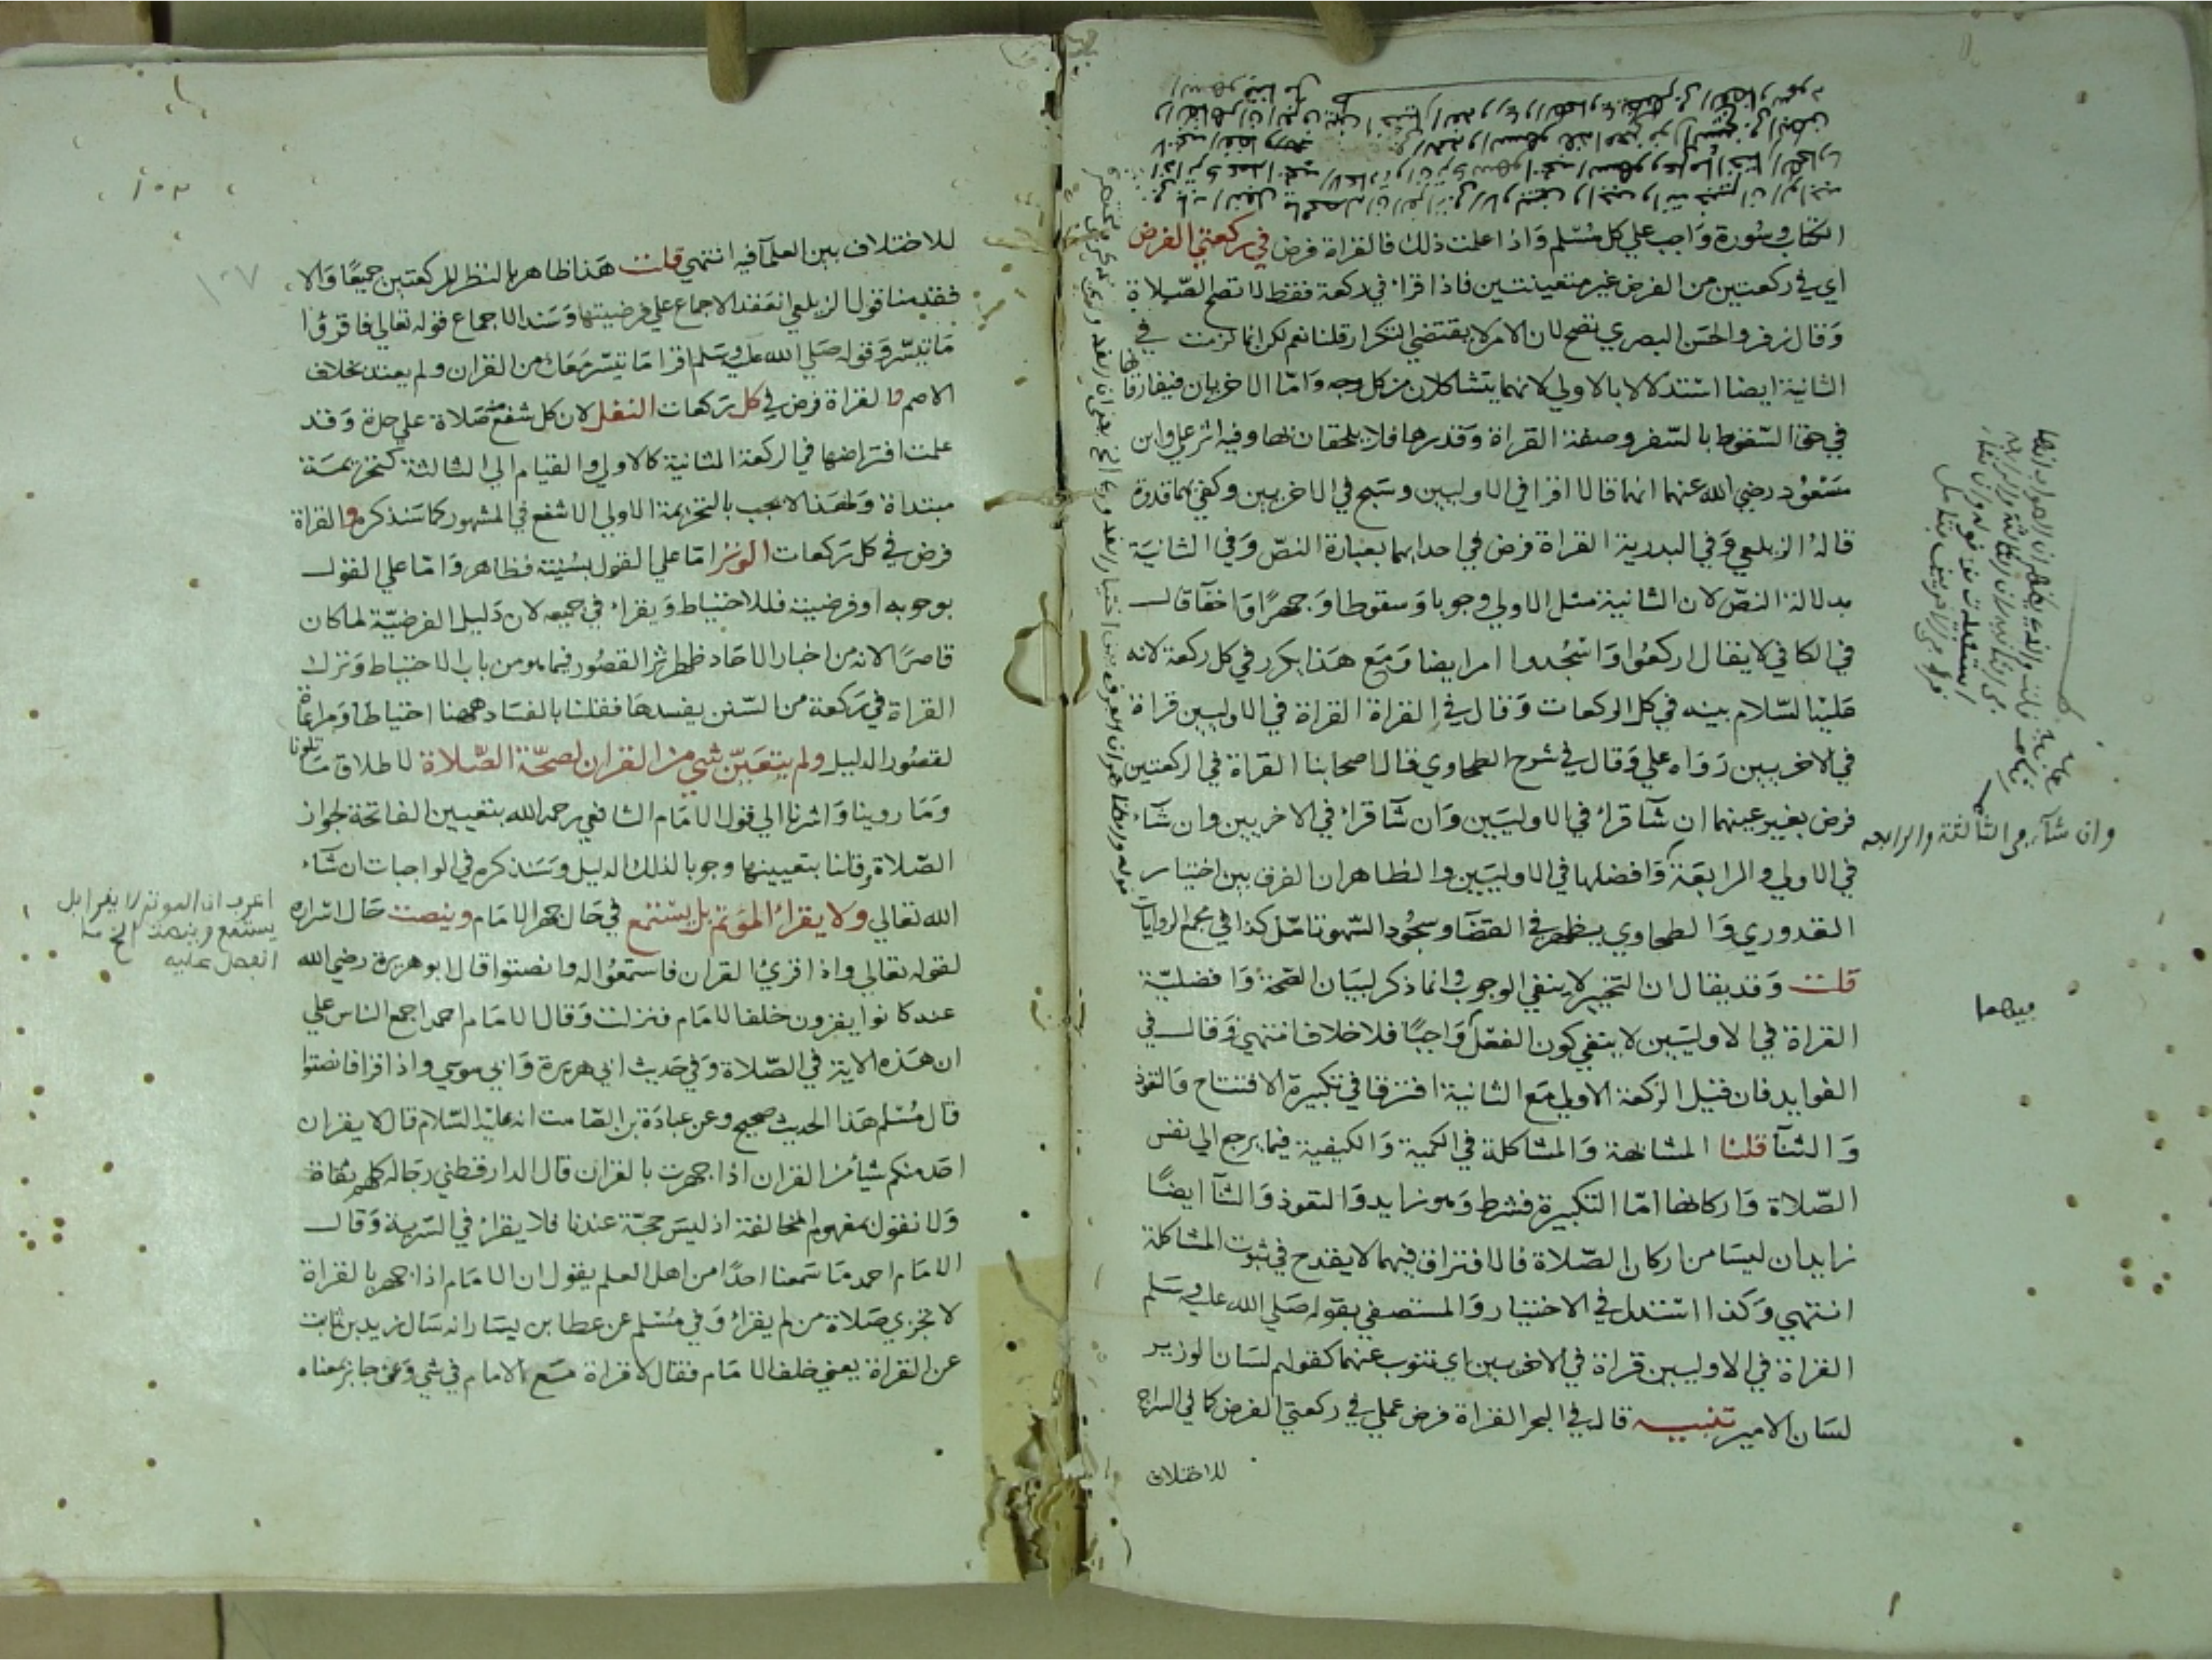 الكتاب وسورة واجب علي كل مسلم واذا علمت ذلك فالقراة فرض في ركعتي الفرض
اي في ركعتين من الفرض غير متعينتين فاذا قراء في ركعة فقط لا تصح الصلاة
وقال زفر والحسن البصري تصح لان الامر لا يقتضي التكرار قلنا نعم لكن انما لزمت في
الثانية ايضا استدلالا بالاولي لانهما يتشاكلان من كل وجه واما الاخريان فيفارقانها
في حق السقوط بالسفر وصفة القراة وقدرها فلا يلحقان بها وفيه اثر علي وابن
مسعود رضي الله عنهما انهما قالا اقرا في الاوليين وسبح في الاخريين وكفي بهما قدوة
قاله الزيلعي وفي البدرية القراة فرض في احداهما بعبارة النص وفي الثانية
بدلالة النص لان الثانية مثل الاولي وجوبا وسقوطا وجهرا واخفا قال
في الكافي لا يقال اركعوا واسجدوا امر ايضا ومع هذا يكرر في كل ركعة لانه
عليه السلام بينه في كل الركعات وقال في القراة القراة في الاوليين قراة
في الاخريين رواه علي وقال في شرح الطحاوي قال اصحابنا القراة في الركعتين
فرض بغير عينهما ان شآ قراء في الاوليين وان شآ قراء في الاخريين وان شآء
وان شآء في الثالثة والرابعة
في الاولي والرابعة وافضلها في الاوليين والظاهر ان الفرق بين اختيار
القدوري والطحاوي يظهر في القضآ وسجود السهو تامل كذا في مجمع الروايات
قلت وقد يقال ان التخيير لا ينفي الوجوب وانما ذكر لبيان الصحة وافضلية
القراة في الاوليين لا ينفي كون الفعل واجبا فلا خلاف انتهي وقال في
فيهما
الفوايد فان قيل الركعة الاولي مع الثانية افترقا في تكبيرة الافتتاح والتعوذ
والثنآ قلنا المشابهة والمشاكلة في الكمية والكيفية فيما يرجع الي نفس
الصلاة واركانها اما التكبيرة فشرط وهو زايد والتعوذ والثنآ ايضا
زايدان ليسا من اركان الصلاة فالافتراق فيهما لا يقدح في ثبوت المشاكلة
انتهي وكذا استدل في الاختيار والمستصفي بقوله صلي الله عليه وسلم
القراة في الاوليين قراة في الاخريين اي تنوب عنهما كقولهم لسان الوزير
لسان الامير تنبيه قال في البحر القراة فرض عملي في ركعتي الفرض كما في السراج
للاختلاف
١٠٣
١٠٧
للاختلاف بين العلمآ فيه انتهي قلت هذا ظاهر بالنظر للركعتين جميعا والا
فقد منا قول الزيلعي انعقد الاجماع علي فرضيتها وسند الاجماع قوله تعالي فاقروا
ما تيسر وقوله صلي الله عليه وسلم اقرا ما تيسر معك من القران ولم يعتد بخلاف
الاصم والقراة فرض في كل ركعات النفل لان كل شفع منه صلاة علي حدة وقد
علمت افتراضها في الركعة الثانية كالاولي والقيام الي الثالثة كتحريمة
مبتداة ولهذا لا يجب بالتحريمة الاولي الا شفع في المشهور كما سنذكره والقراة
فرض في كل ركعات الوتر اما علي القول بسنيته فظاهر واما علي القول
بوجوبه او فرضيته فللاحتياط ويقراء في جميعه لان دليل الفرضية لما كان
قاصرا لانه من اخبار الاحاد ظهر اثر القصور فيما هو من باب الاحتياط وترك
القراة في ركعة من السنن يفسدها فقلنا بالفساد ههنا احتياطا ومراعاة
لقصور الدليل ولم يتعين شي من القران لصحة الصلاة لاطلاق ما تلونا
وما روينا واشرنا الي قول الامام الشافعي رحمه الله بتعيين الفاتحة لجواز
الصلاة وقلنا بتعيينها وجوبا لذلك الدليل وسنذكره في الواجبات ان شآء
الله تعالي ولا يقراء المؤتم بل يستمع في حال جهر الامام وينصت حال اسراره
لقوله تعالي واذا قري القران فاستمعوا له وانصتوا قال ابو هريرة رضي الله
عنه كانوا يقرون خلف الامام فنزلت وقال الامام احمد اجمع الناس علي
ان هذه الاية في الصلاة وفي حديث ابي هريرة وابي موسي واذا قرا فانصتوا
قال مسلم هذا الحديث صحيح وعن عبادة بن الصامت انه عليه السلام قال لا يقران
احد منكم شيأ من القران اذا جهرت بالقران قال الدارقطني رجاله كلهم ثقاة
ولا نقول بمفهوم المخالفة اذ ليس حجة عندنا فلا يقراء في السرية وقال
الامام احمد ما سمعنا احدا من اهل العلم يقول ان الامام اذا جهر بالقراة
لا تجزي صلاة من لم يقراء وفي مسلم عن عطا بن يسار انه سال زيد بن ثابت
عن القراة يعني خلف الامام فقال لا قراة مع الامام في شي وعن جابر بمعناه
اعرب ان المؤتم لا يقرا بل
يستمع وينصت الخ